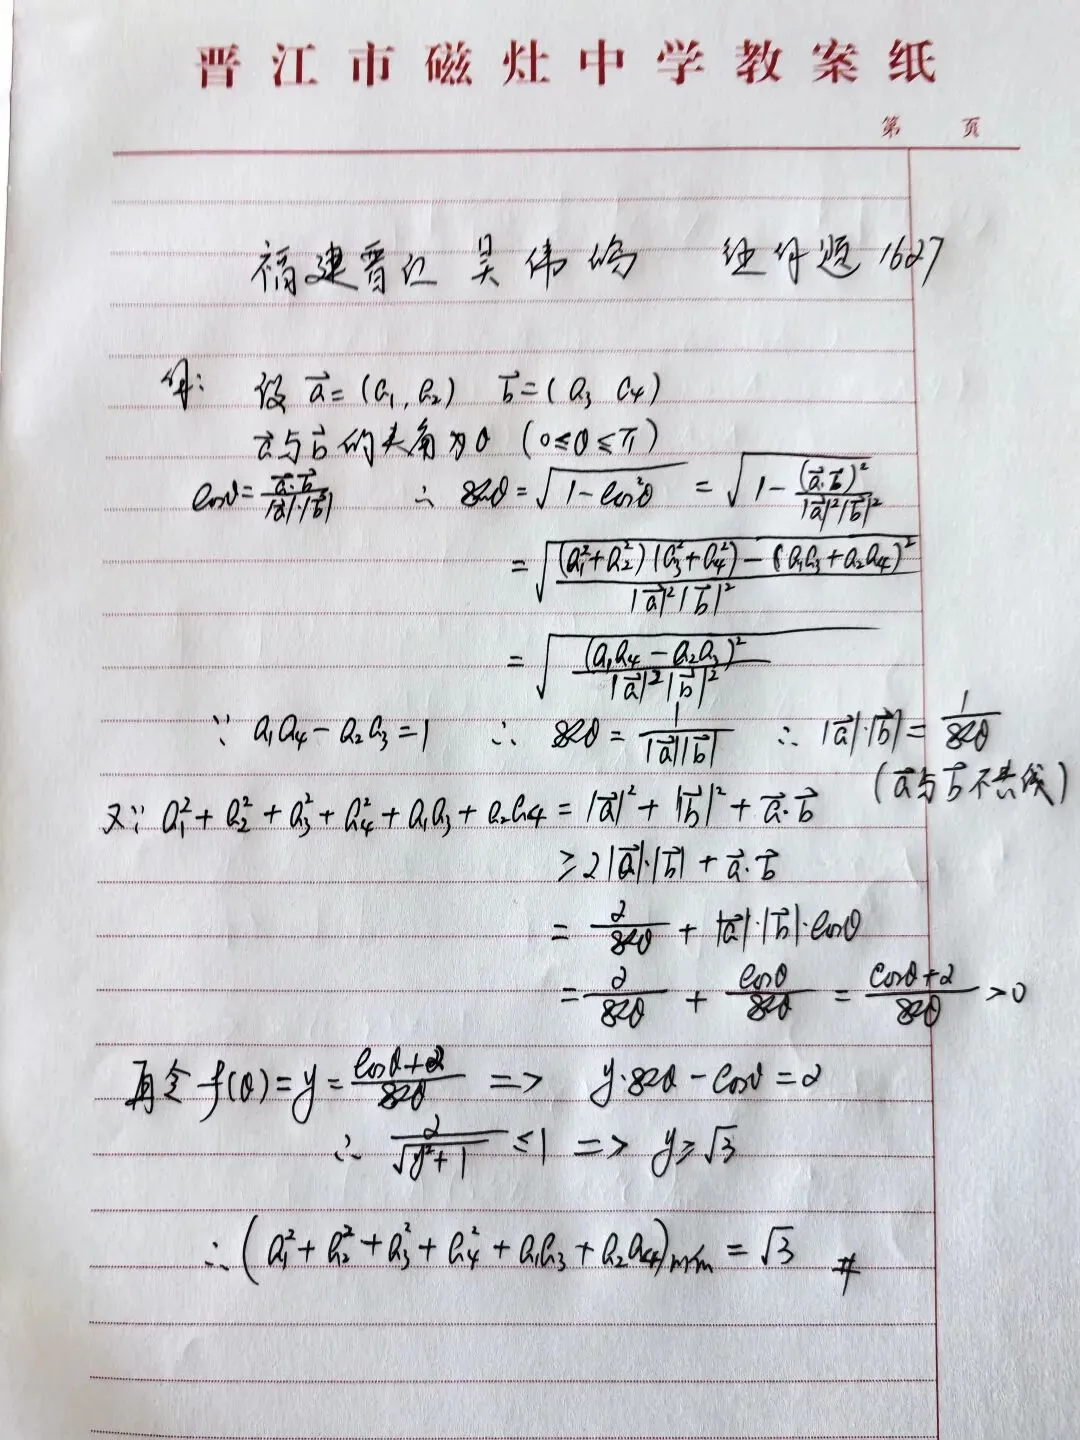 晋江市磁灶中学教案纸
第 页
福建晋江 吴伟 1627
解: 设 a⃗=(a₁, a₂) b⃗=(a₃ a₄)
a⃗与b⃗的夹角为θ (0≤θ≤π)
cosθ = a⃗·b⃗/|a⃗|·|b⃗| ∴ sinθ = √(1-cos²θ) = √(1-(a⃗·b⃗)²/|a⃗|²|b⃗|²)
= √(((a₁²+a₂²)(a₃²+a₄²)-(a₁a₃+a₂a₄)²)/|a⃗|²|b⃗|²)
= √((a₁a₄-a₂a₃)²/|a⃗|²|b⃗|²)
∵ a₁a₄-a₂a₃=1 ∴ sinθ = 1/|a⃗||b⃗| ∴ |a⃗|·|b⃗| = 1/sinθ
(a⃗与b⃗不共线)
又∵ a₁²+a₂²+a₃²+a₄²+a₁a₃+a₂a₄ = |a⃗|²+|b⃗|²+a⃗·b⃗
≥2|a⃗|·|b⃗|+a⃗·b⃗
= 2/sinθ + |a⃗|·|b⃗|·cosθ
= 2/sinθ + cosθ/sinθ = (cosθ+2)/sinθ >0
再令 f(θ)=y=(cosθ+2)/sinθ => y·sinθ-cosθ=2
∴ 2/√(y²+1) ≤1 => y≥√3
∴ (a₁²+a₂²+a₃²+a₄²+a₁a₃+a₂a₄)min = √3 #